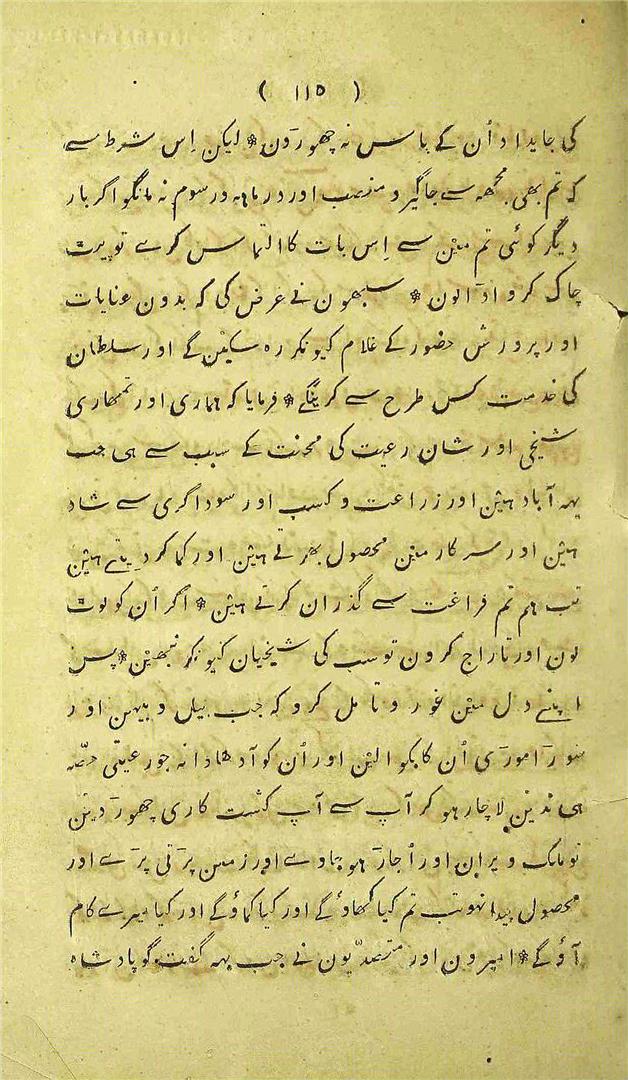 ( ۱۱۵ )
کی جایداد اُن کے پاس نہ چھوڑون * لیکن اِس شرط سے
کہ تم بھی مجھہ سے جاگیر و منصب اور درماہہ و رسوم نہ مانگو اگر بار
دیگر کوئی تم مین سے اِس بات کا التماس کرے تو پیٹ
چاک کروا ڈالون * سبھون نے عرض کی کہ بدون عنایات
اور پرورش حضور کے غلام کیونکر رہ سکینگے اور سلطان
کی خدمت کس طرح سے کرینگے * فرمایا کہ ہماری اور تمھاری
شیخی اور شان رعیت کی محنت کے سبب سے ہی جب
یہہ آباد ہین اور زراعت و کسب اور سوداگری سے شاد
ہین اور سرکار مین محصول بھرتے ہین اور کما کر دیتے ہین
تب ہم تم فراغت سے گذران کرتے ہین * اگر اُن کو لوٹ
لون اور تاراج کرون تو سب کی شیخیان کیونکر نبھین * پس
اپنے دل مین غور و تامل کرو کہ جب بیل و بیہن اور
اُن کا بکوا لین اور اُن کو آدھا دانہ جو رعیتی حصّہ
ہی ندین لاچار ہو کر آپ سے آپ کشت کاری چھوڑ دین
تو ملک ویران اور اُجاڑ ہو جاوے اور زمین پڑتی پڑے اور
محصول پیدا نہو تب تم کیا کھاؤگے اور کیا کماؤگے اور کیا میرے کام
آؤگے * امیرون اور متصدّیون نے جب یہہ گفت گو پادشاہ